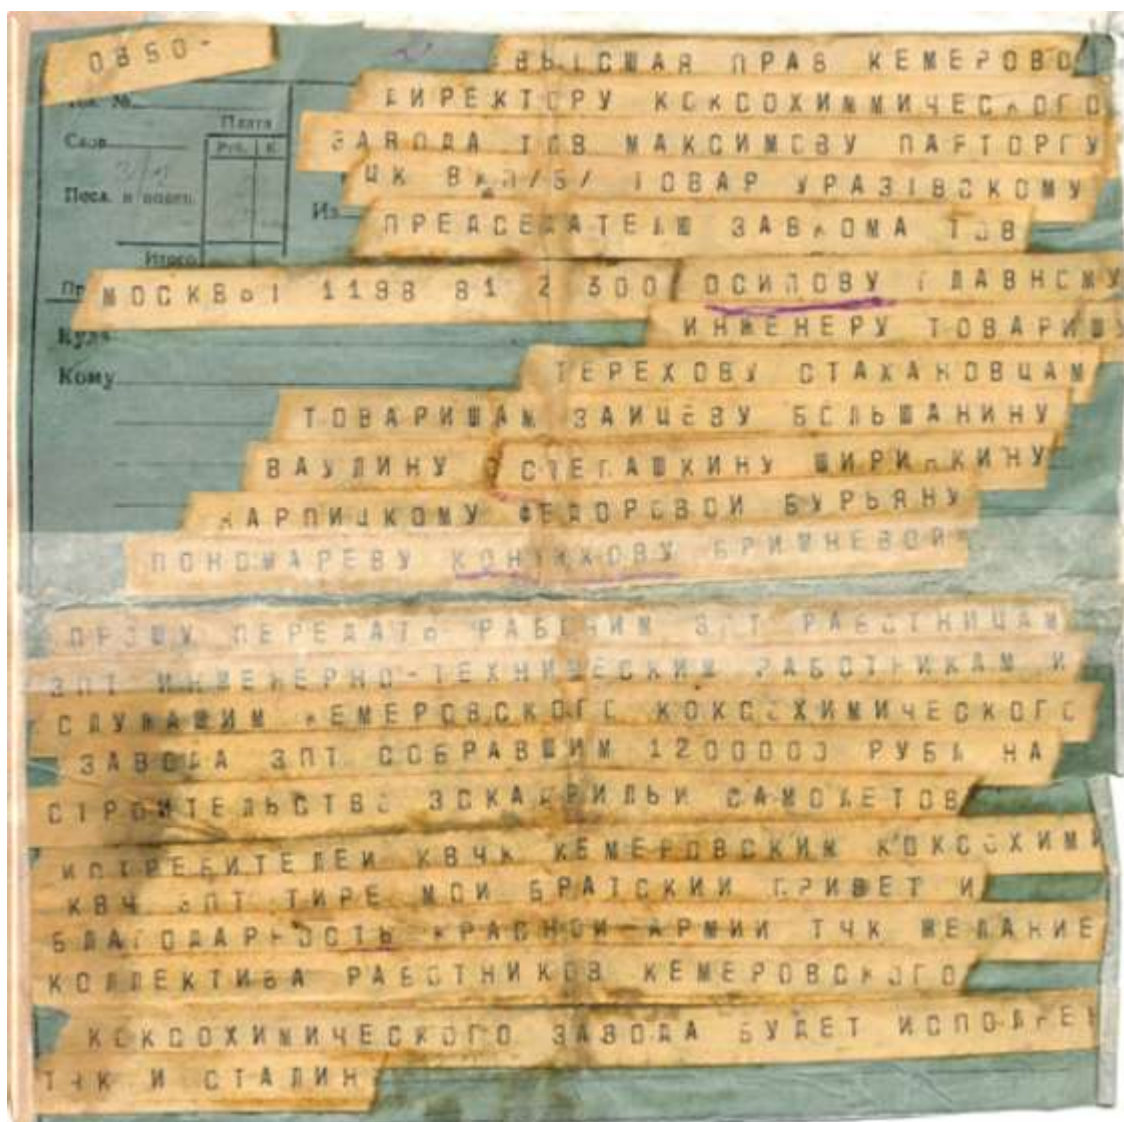 0850-
ВЫСШАЯ ПРАВ КЕМЕРОВО
ДИРЕКТОРУ КОКСОХИММИЧЕСКОГО
ЗАВОДА ТОВ МАКСИМОВУ ПАРТОРГУ
ЦК ВКП/Б/ ТОВАР УРАЗОВСКОМУ
ПРЕДСЕДАТЕЛЮ ЗАВКОМА ТОВ
МОСКВЫ 1198 81 2 300 ОСИПОВУ ГЛАВНОМУ
ИНЖЕНЕРУ ТОВАРИЩУ
ТЕРЕХОВУ СТАХАНОВЦАМ
ТОВАРИЩАМ ЗАИЦЕВУ БОЛЬШАНИНУ
ВАУЛИНУ СТЕПАШКИНУ ШИРИНКИНУ
КАРПИЦКОМУ ФЕДОРОВОЙ БУРЬЯНУ
ПОНОМАРЕВУ КОННИКОВУ БРИШНЕВОЙ
ПРОШУ ПЕРЕДАТЬ РАБОЧИМ ЗПТ РАБОТНИЦАМ
ЗПТ ИНЖЕНЕРНО-ТЕХНИЧЕСКИМ РАБОТНИКАМ И
СЛУЖАЩИМ КЕМЕРОВСКОГО КОКСОХИМИЧЕСКОГО
ЗАВОДА ЗПТ СОБРАВШИМ 1200000 РУБЛ НА
СТРОИТЕЛЬСТВО ЭСКАДРИЛЬИ САМОЛЕТОВ
ИСТРЕБИТЕЛЕЙ КВЧК КЕМЕРОВСКИМ КОКСОХИМИ
КВЧ ЗПТ ТИРЕ МОЙ БРАТСКИЙ ПРИВЕТ И
БЛАГОДАРНОСТЬ КРАСНОЙ АРМИИ ТЧК ЖЕЛАНИЕ
КОЛЛЕКТИВА РАБОТНИКОВ КЕМЕРОВСКОГО
КОКСОХИМИЧЕСКОГО ЗАВОДА БУДЕТ ИСПОЛНЕН
ТЧК И СТАЛИН
Тел. №
Слов
Плата
Руб.
К.
Посл. и
Из
Итого
Куда
Кому